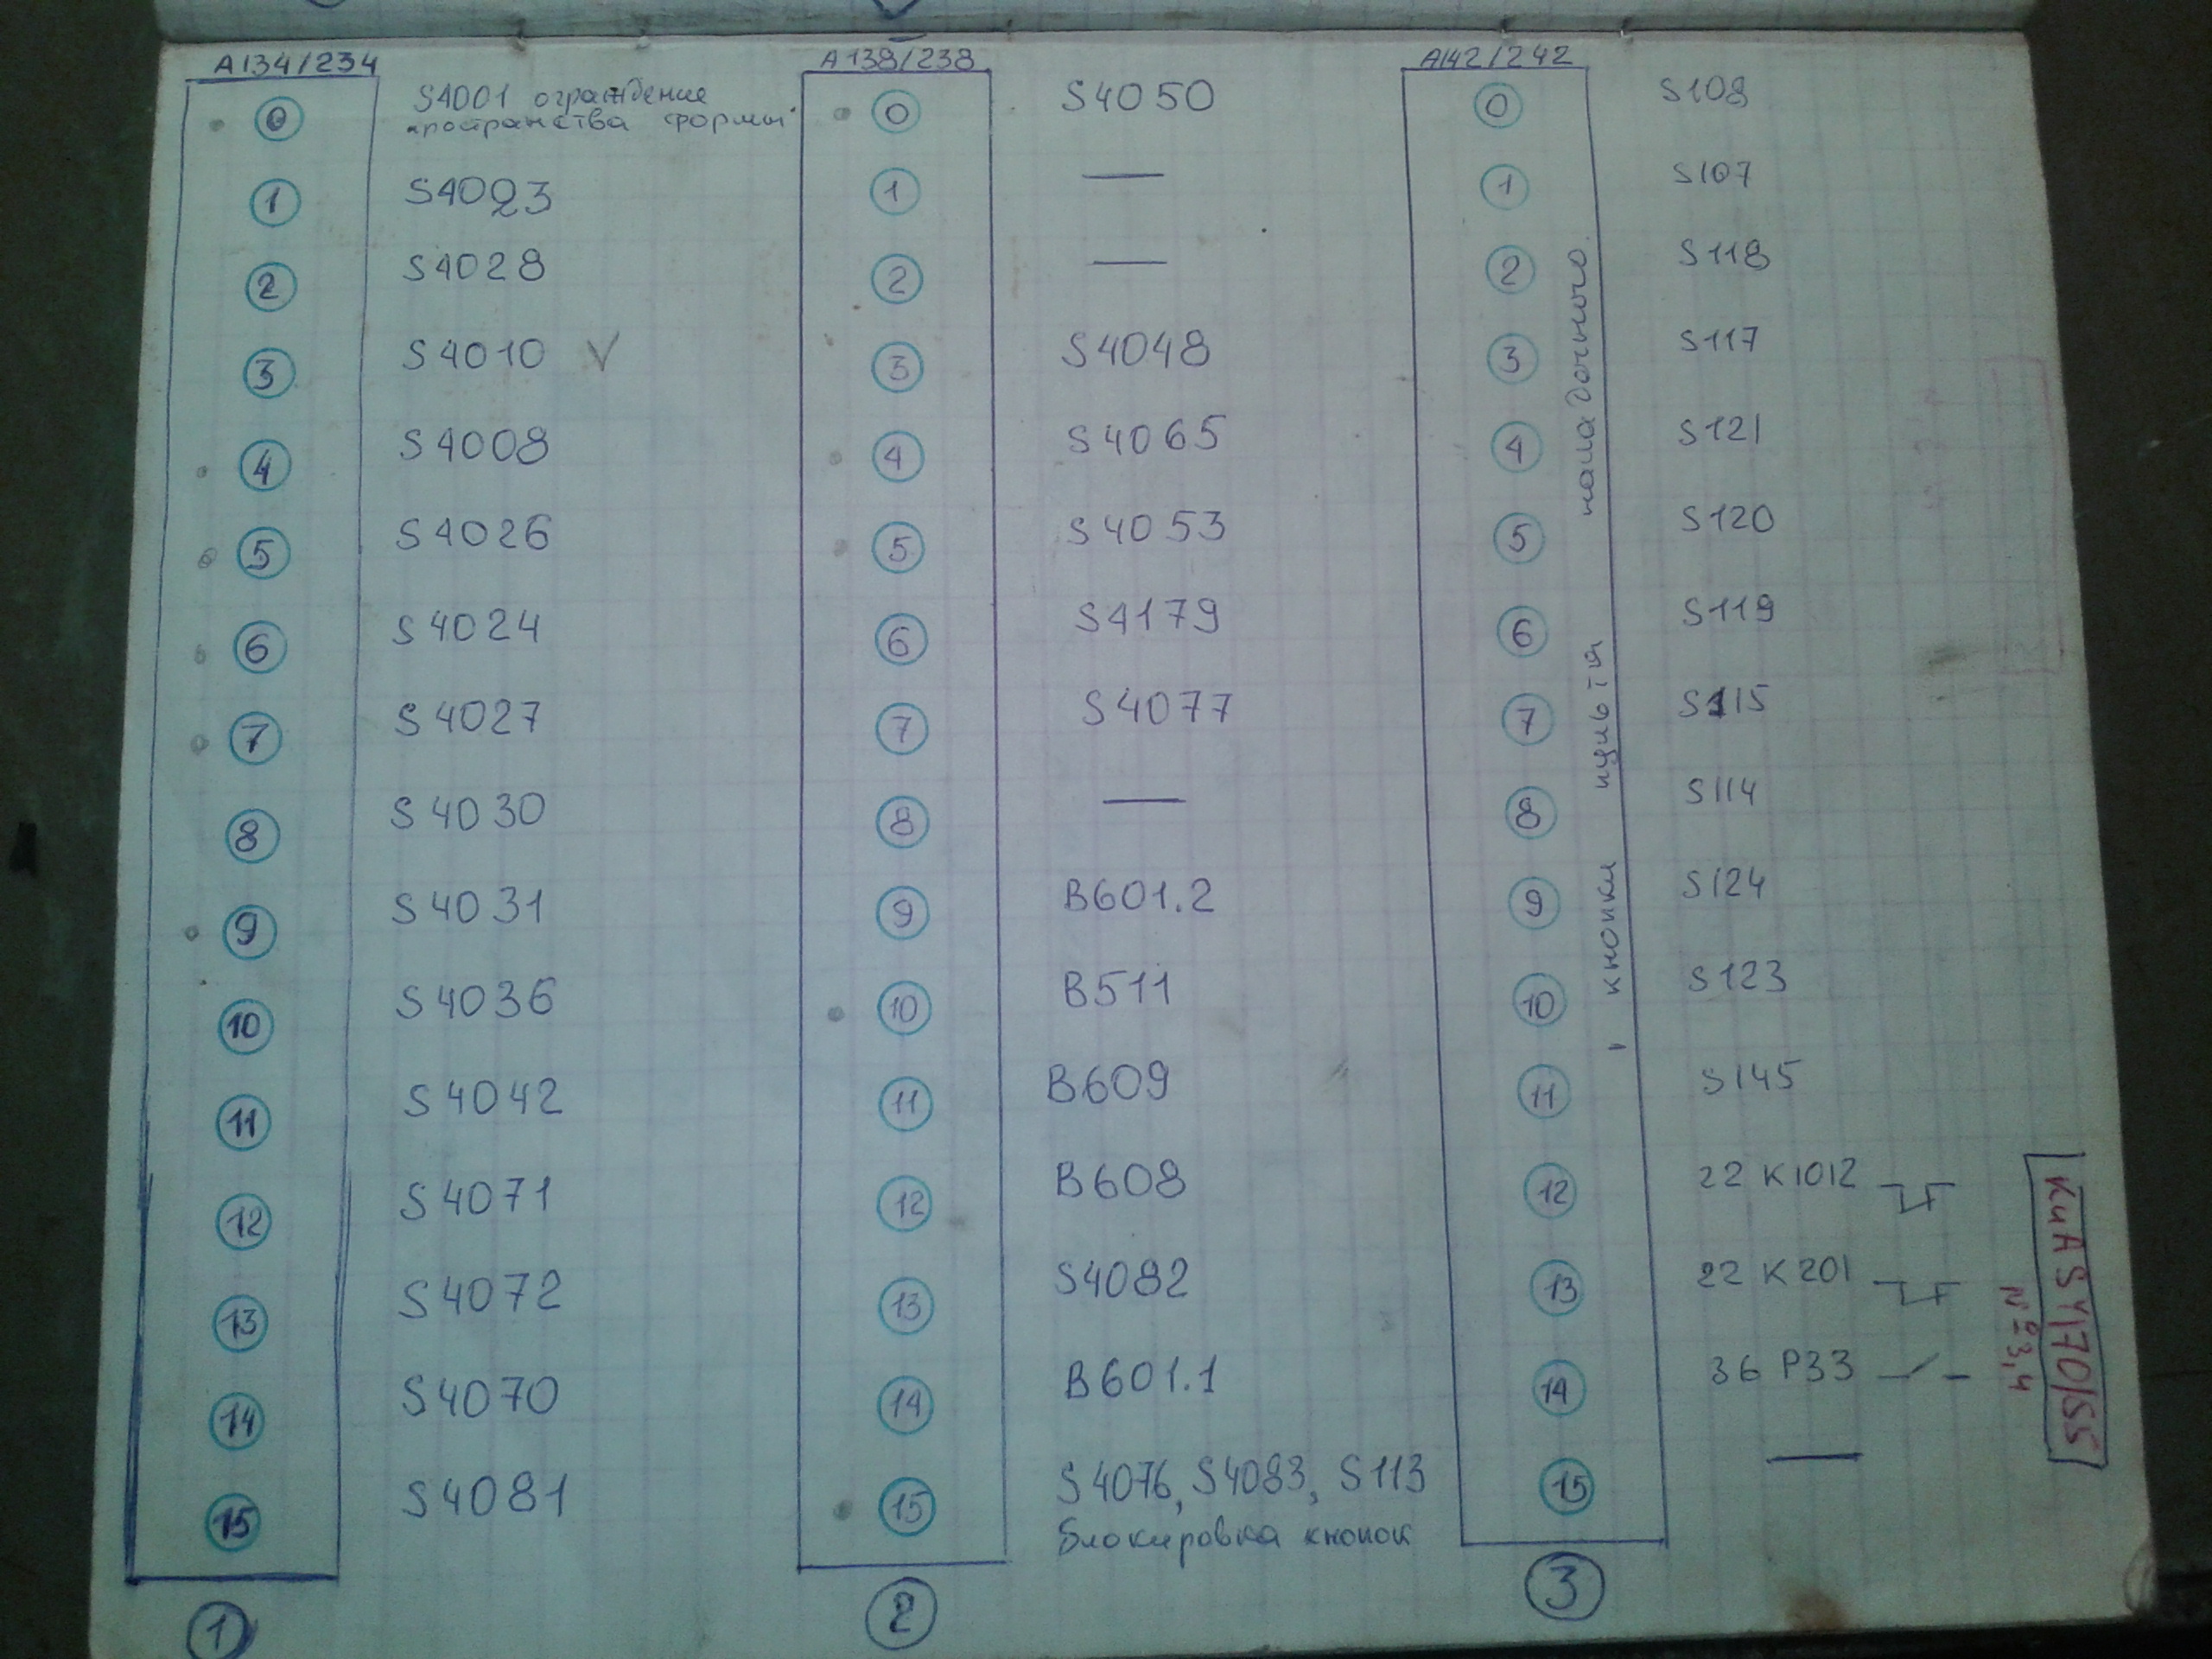 A134/234
0 S4001 ограждение
пространства формы
1 S4023
2 S4028
3 S4010 V
4 S4008
5 S4026
6 S4024
7 S4027
8 S4030
9 S4031
10 S4036
11 S4042
12 S4071
13 S4072
14 S4070
15 S4081
1
A138/238
0 S4050
1 —
2 —
3 S4048
4 S4065
5 S4053
6 S4179
7 S4077
8 —
9 B601.2
10 B511
11 B609
12 B608
13 S4082
14 B601.1
15 S4076, S4083, S113
блокировка кнопок
2
A142/242
0 S108
1 S107
2 S118
3 S117
4 S121
5 S120
6 S119
7 S115
8 S114
9 S124
10 S123
11 S145
12 22 K1012
13 22 K201
14 36 P33
15 —
3
кнопки пульта наладочного
KuASY170/55
№3,4